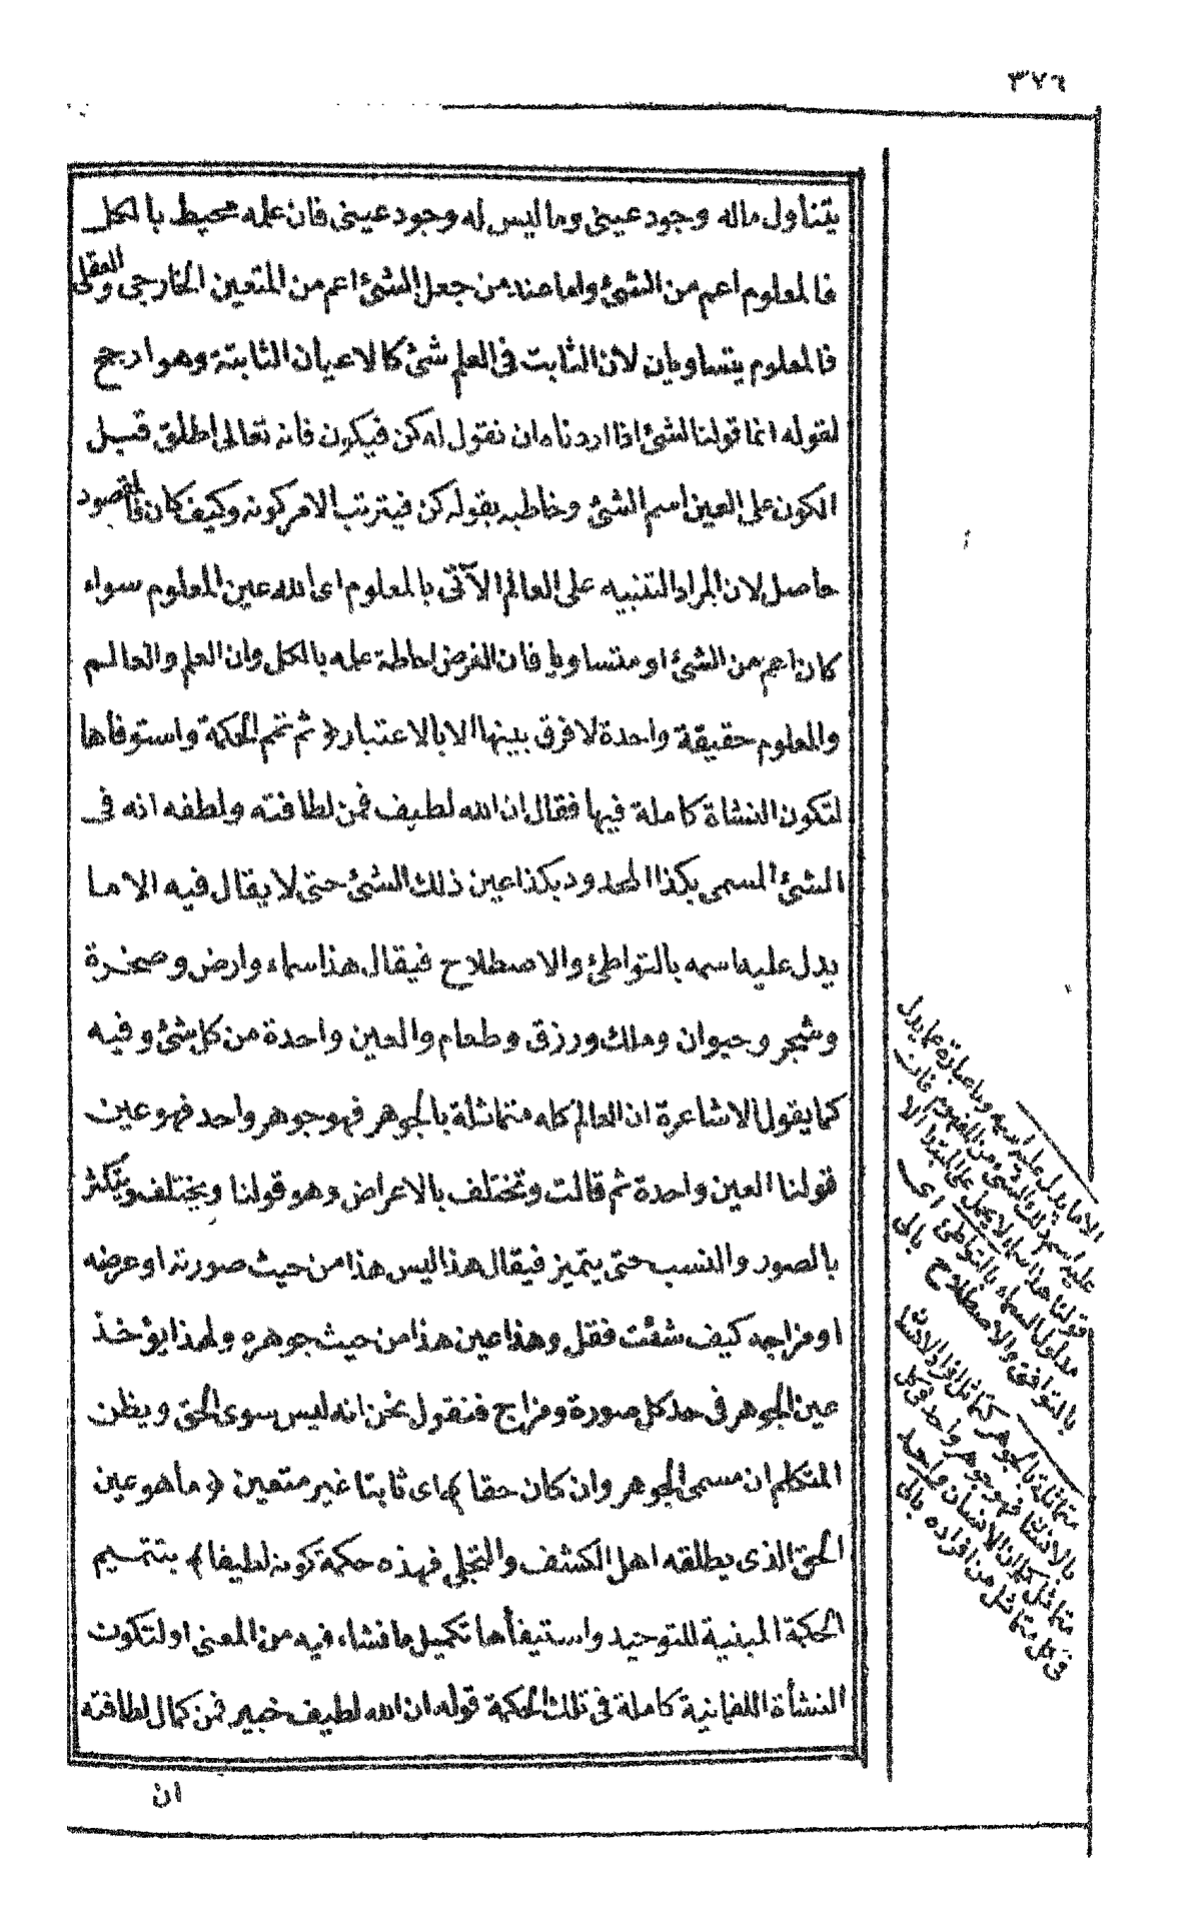 ٣٧٦
يتناول ماله وجود عينى وما ليس له وجود عينى فان علمه محيط بالكل
فالمعلوم اعم من الشئ واما عند من جعل الشئ اعم من المتعين الخارجى والعقلى
فالمعلوم يتساويان لان الثابت فى العلم شئ كالاعيان الثابتة وهو ارجح
لقوله انما قولنا لشئ اذا اردناه ان نقول له كن فيكون فانه تعالى اطلق قبل
الكون على العين اسم الشئ وخاطبه بقوله كن فيترتب الامر كونه وكيف كان فالمقصود
حاصل لان المراد التنبيه على العالم الآتى بالمعلوم اى الله عين المعلوم سواء
كان اعم من الشئ او متساويا فان الغرض احاطة علمه بالكل وان العلم والعالم
والمعلوم حقيقة واحدة لا فرق بينها الا بالاعتبار ﴿ ثم تمم الحكمة واستوفأها
لتكون النشاة كاملة فيها فقال ان الله لطيف فمن لطافته ولطفه انه فى
الشئ المسمى بكذا المحدود بكذا عين ذلك الشئ حتى لا يقال فيه الا ما
يدل عليه اسمه بالتواطئ والاصطلاح فيقال هذا سماء وارض وصخرة
وشجر وحيوان وملك ورزق وطعام والعين واحدة من كل شئ وفيه
كما يقول الاشاعرة ان العالم كله متماثلة بالجوهر فهو جوهر واحد فهو عين
قولنا العين واحدة ثم قالت وتختلف بالاعراض وهو قولنا ويختلف ويتكثر
بالصور والنسب حتى يتميز فيقال هذا ليس هذا من حيث صورته او عرضه
او مزاجه كيف شئت فقل وهذا عين هذا من حيث جوهره ولهذا يؤخذ
عين الجوهر فى حد كل صورة ومزاج فنقول نحن انه ليس سوى الحق ويظن
المتكلم ان مسمى الجوهر وان كان حقا ﴾ اى ثابتا غير متعين ﴿ ما هو عين
الحق الذى يطلقه اهل الكشف والتجلى فهذه حكمة كونه لطيفا ﴾ بتتميم
الحكمة المبنية للتوحيد واستيفأها تكميل ما فشاء فيه من المعنى او لتكون
النشأة اللقمانية كاملة فى تلك الحكمة قوله ان الله لطيف خبير فمن كمال لطافته
ان
الا ما يدل عليه اسمه وبا عبارة ما يدل
عليه اسم ذلك الشئ من المفهوم فان
قولنا هذا سماء لا يحمل على المبتدا الا
مدلول السماء بالتواطئ اى
بالتوافق والاصطلاح بال
متماثلة بالجوهر كتماثل افراد الانسان
بالانسان فهو جوهر واحد فى كل
متماثل كما ان الانسان واحد
فى كل متماثل من افراده بال